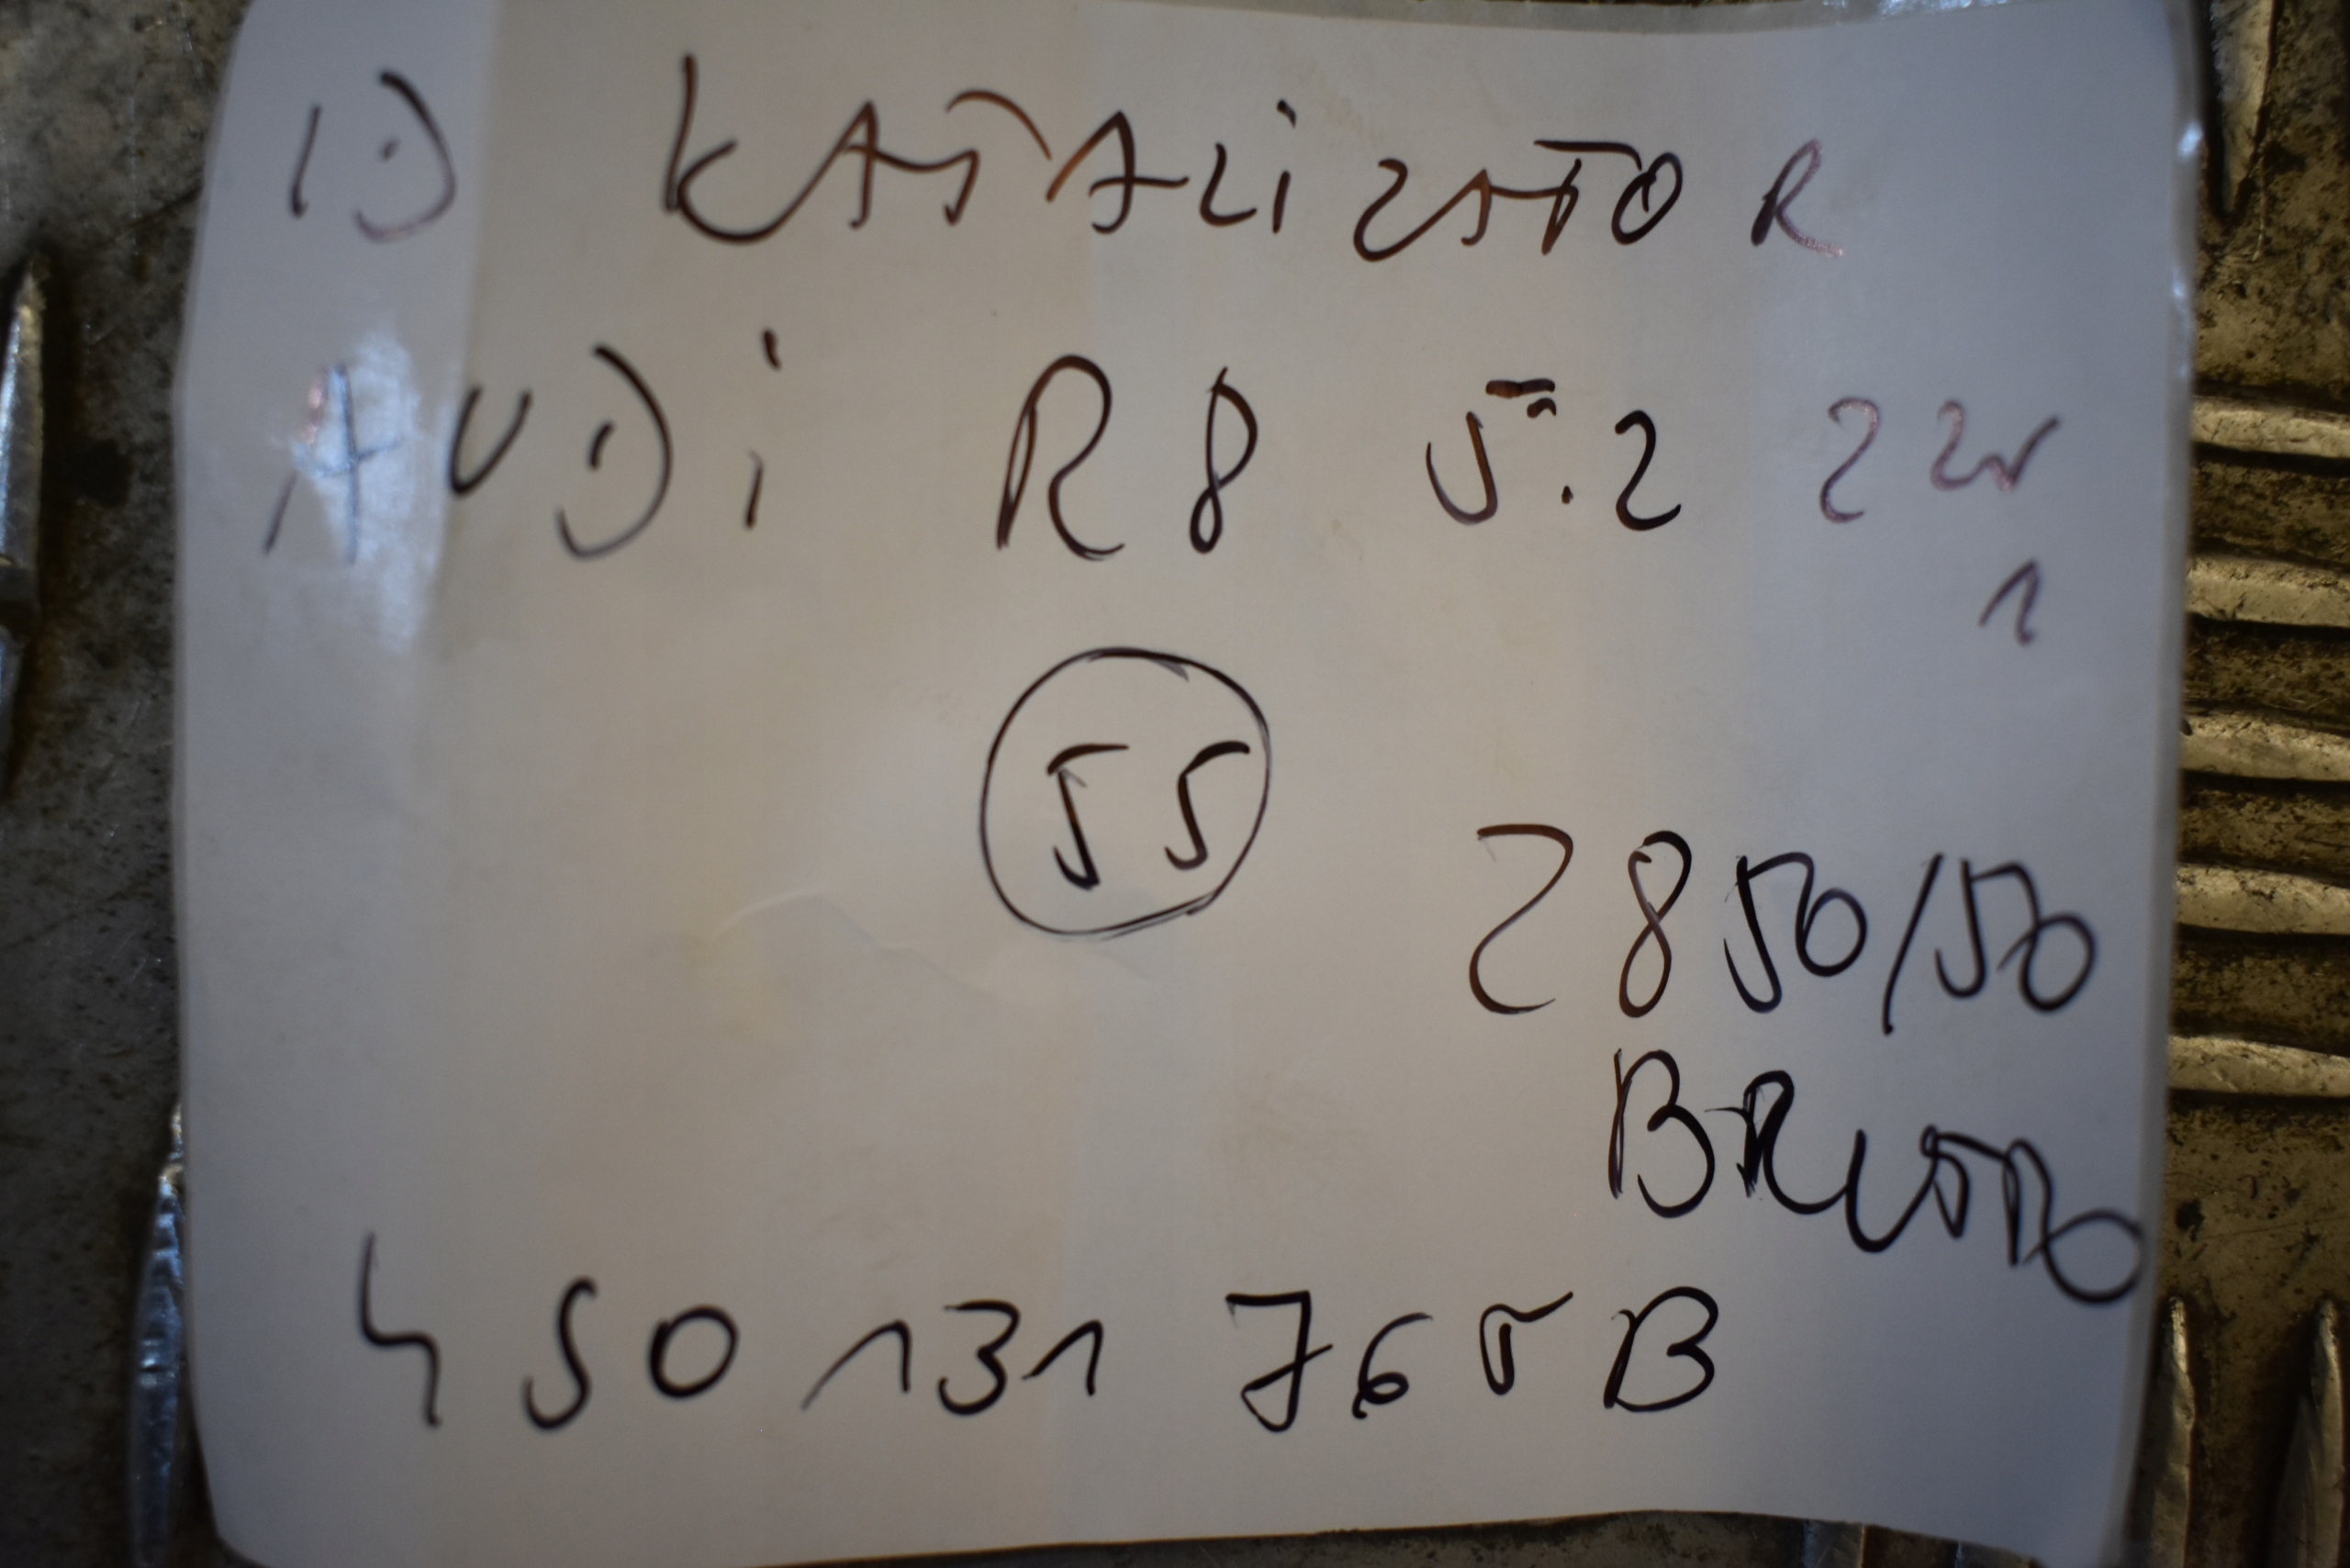 D KATALIZATOR
AUDi R8 5.2
1
55
2850/50
BRUTTO
4S0 131 765B